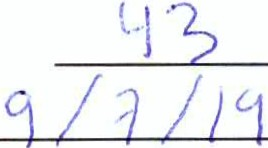 43
9/7/19